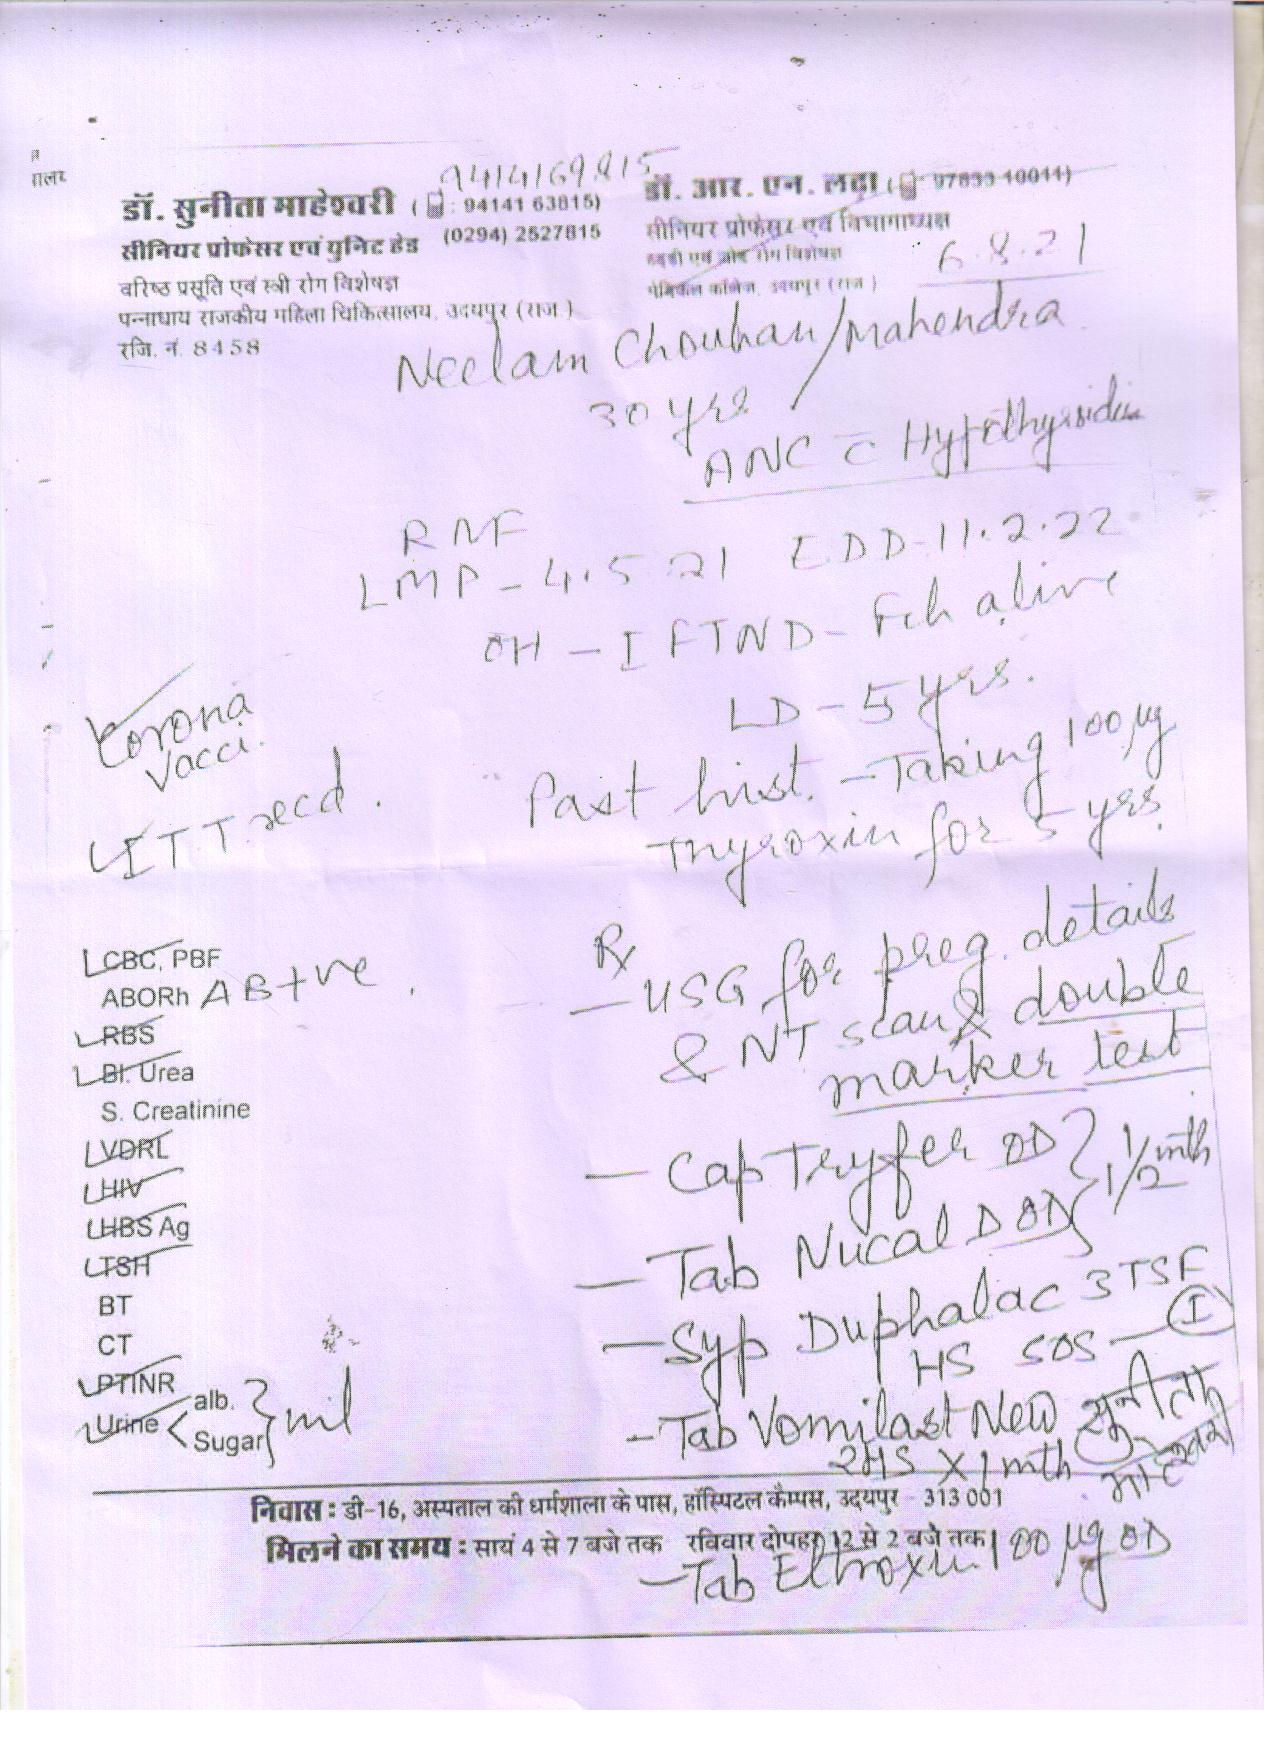 ालय
9414169815
डॉ. सुनीता माहेश्वरी ( : 94141 63815)
(0294) 2527815
सीनियर प्रोफेसर एवं युनिट हेड
वरिष्ठ प्रसूति एवं स्त्री रोग विशेषज्ञ
पन्नाधाय राजकीय महिला चिकित्सालय, उदयपुर (राज.)
रजि. नं. 8458
डॉ. आर. एन. लढ़ा ( : 97833 10011)
सीनियर प्रोफेसर एवं विभागाध्यक्ष
स्त्री एवं प्रसूति रोग विशेषज्ञ
मेडिकल कॉलेज, उदयपुर (राज.)
6.8.21
Neelam Chouhan/Mahendra
30 yrs
ANC c̄ Hypothyroidism
RMF
LMP - 4.5.21 EDD-11.2.22
OH - I FTND - Fch alive
LD - 5 yrs.
Past hist. - Taking 100 µg
Thyroxin for 5 yrs.
Corona
Vacci.
I TT recd.
CBC, PBF
ABORh AB+ve.
RBS
Bl. Urea
S. Creatinine
VDRL
HIV
HBS Ag
TSH
BT
CT
PTINR
Urine < alb. Sugar } nil
Rx
- USG for preg. details
& NT scan & double
marker test
- Cap Tryfer OD } 1/1/2 mth
- Tab Nucal D OD
- Syp Duphalac 3 TSF
HS SOS - (I)
- Tab Vomilast New
2HS X 1 mth
सुनीता
माहेश्वरी
निवास : डी-16, अस्पताल की धर्मशाला के पास, हॉस्पिटल कैम्पस, उदयपुर - 313 001
मिलने का समय : सायं 4 से 7 बजे तक रविवार दोपहर 12 से 2 बजे तक
- Tab Eltroxin 100 µg OD